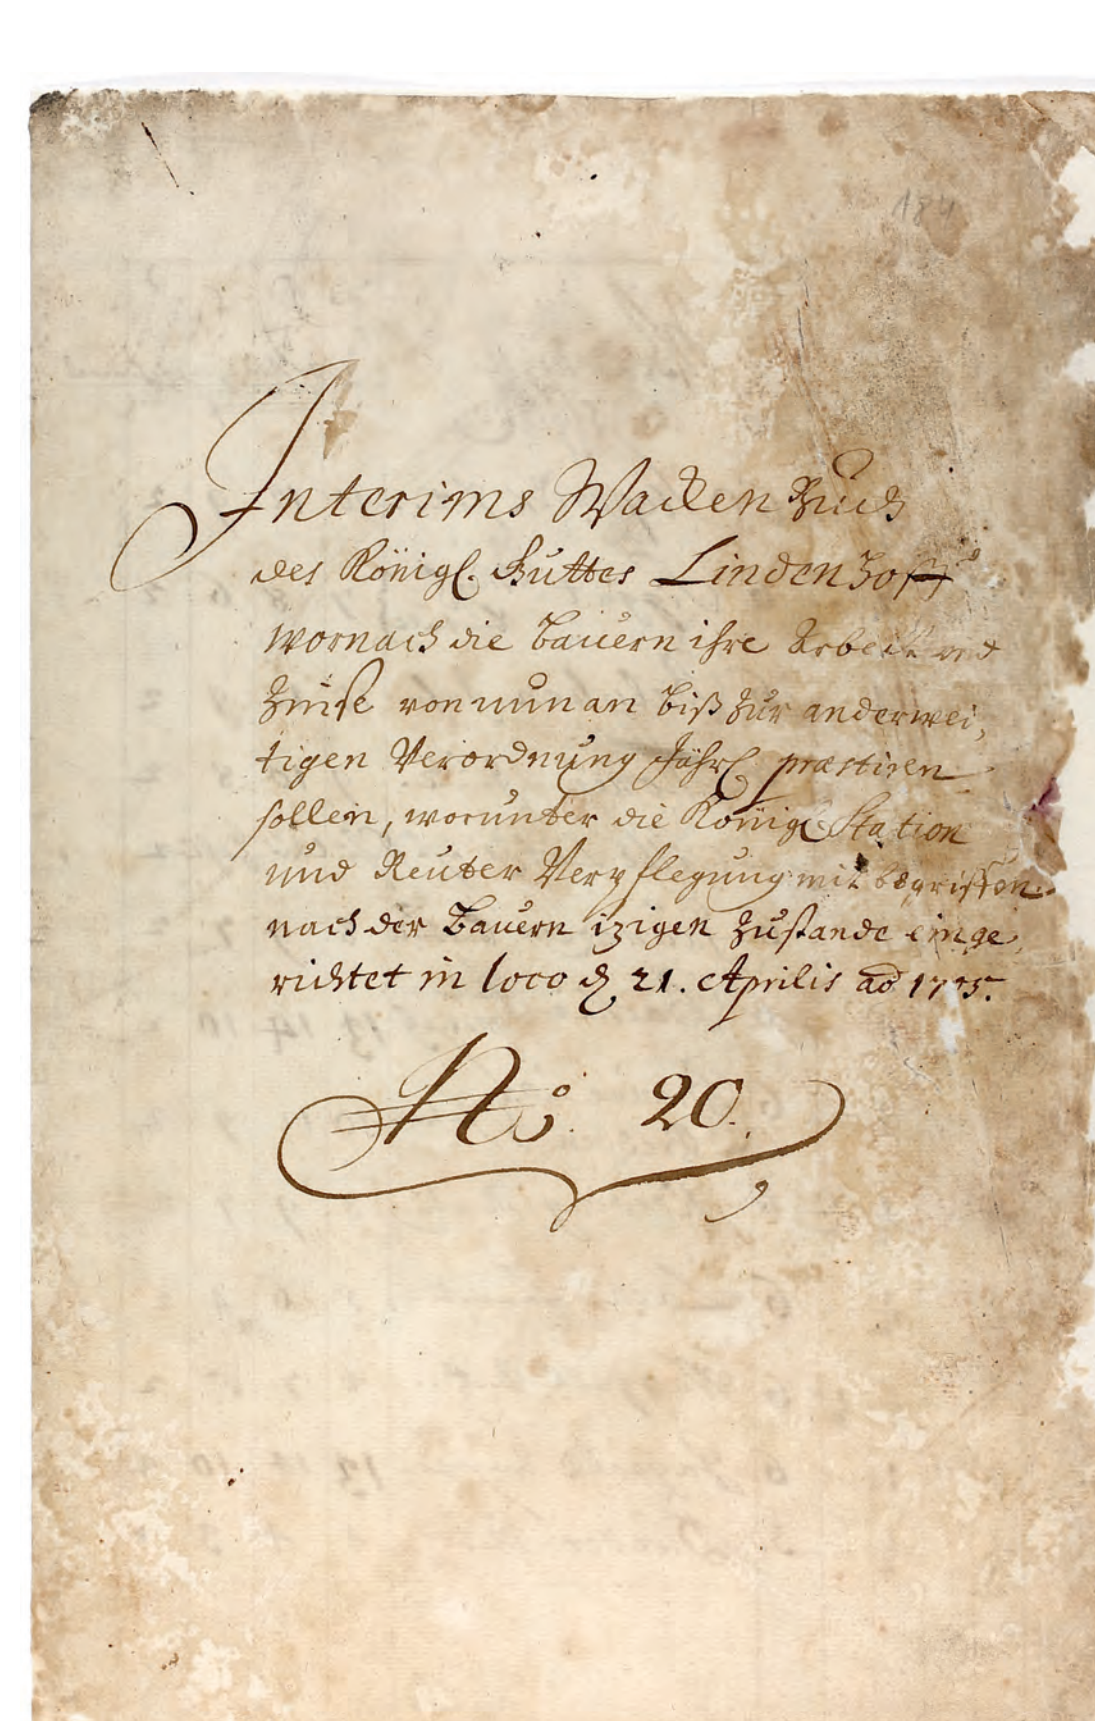 184
Interims Wacken Buch
des Königl. Guttes Lindenhoff
wornach die Bauern ihre Arbeit und
Zinse von nun an biß zur anderwei,
tigen Verordnung Jährl. præstiren
sollen, worunter die Königl Station
und Reuter Verpflegung mit begriffen.
nach der Bauern izigen Zustande einge,
richtet in loco d. 21. Aprilis ao
No: 20.